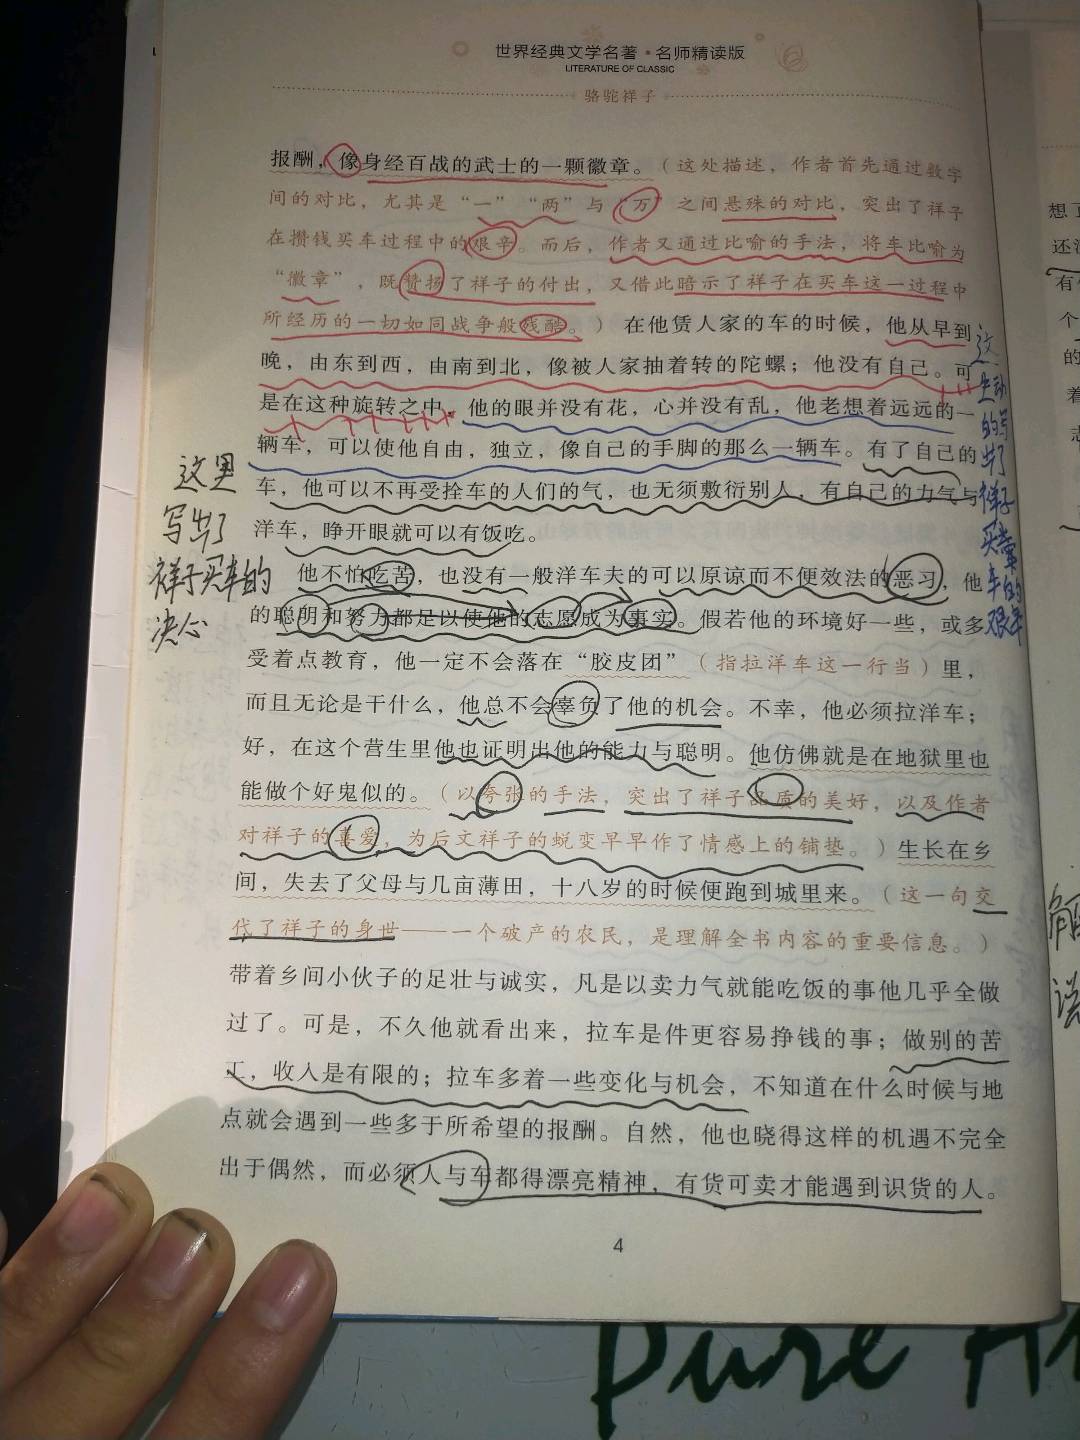 世界经典文学名著·名师精读版
LITERATURE OF CLASSIC
骆驼祥子
报酬，像身经百战的武士的一颗徽章。（这处描述，作者首先通过数字
间的对比，尤其是“一”“两”与“万”之间悬殊的对比，突出了祥子
在攒钱买车过程中的艰辛。而后，作者又通过比喻的手法，将车比喻为
“徽章”，既赞扬了祥子的付出，又借此暗示了祥子在买车这一过程中
所经历的一切如同战争般残酷。）在他赁人家的车的时候，他从早到
晚，由东到西，由南到北，像被人家抽着转的陀螺；他没有自己。可
是在这种旋转之中，他的眼并没有花，心并没有乱，他老想着远远的一
辆车，可以使他自由，独立，像自己的手脚的那么一辆车。有了自己的
车，他可以不再受拴车的人们的气，也无须敷衍别人，有自己的力气与
洋车，睁开眼就可以有饭吃。
他不怕吃苦，也没有一般洋车夫的可以原谅而不便效法的恶习，他
的聪明和努力都足以使他的志愿成为事实。假若他的环境好一些，或多
受着点教育，他一定不会落在“胶皮团”（指拉洋车这一行当）里，
而且无论是干什么，他总不会辜负了他的机会。不幸，他必须拉洋车；
好，在这个营生里他也证明出他的能力与聪明。他仿佛就是在地狱里也
能做个好鬼似的。（以夸张的手法，突出了祥子品质的美好，以及作者
对祥子的喜爱，为后文祥子的蜕变早早作了情感上的铺垫。）生长在乡
间，失去了父母与几亩薄田，十八岁的时候便跑到城里来。（这一句交
代了祥子的身世——一个破产的农民，是理解全书内容的重要信息。）
带着乡间小伙子的足壮与诚实，凡是以卖力气就能吃饭的事他几乎全做
过了。可是，不久他就看出来，拉车是件更容易挣钱的事；做别的苦
工，收入是有限的；拉车多着一些变化与机会，不知道在什么时候与地
点就会遇到一些多于所希望的报酬。自然，他也晓得这样的机遇不完全
出于偶然，而必须人与车都得漂亮精神，有货可卖才能遇到识货的人。
4
这里
写出了
祥子买车的
决心
这
生动
的写
出了
祥子
买
车的
艰辛
想
还
有
个
的
着
解
说
Pure